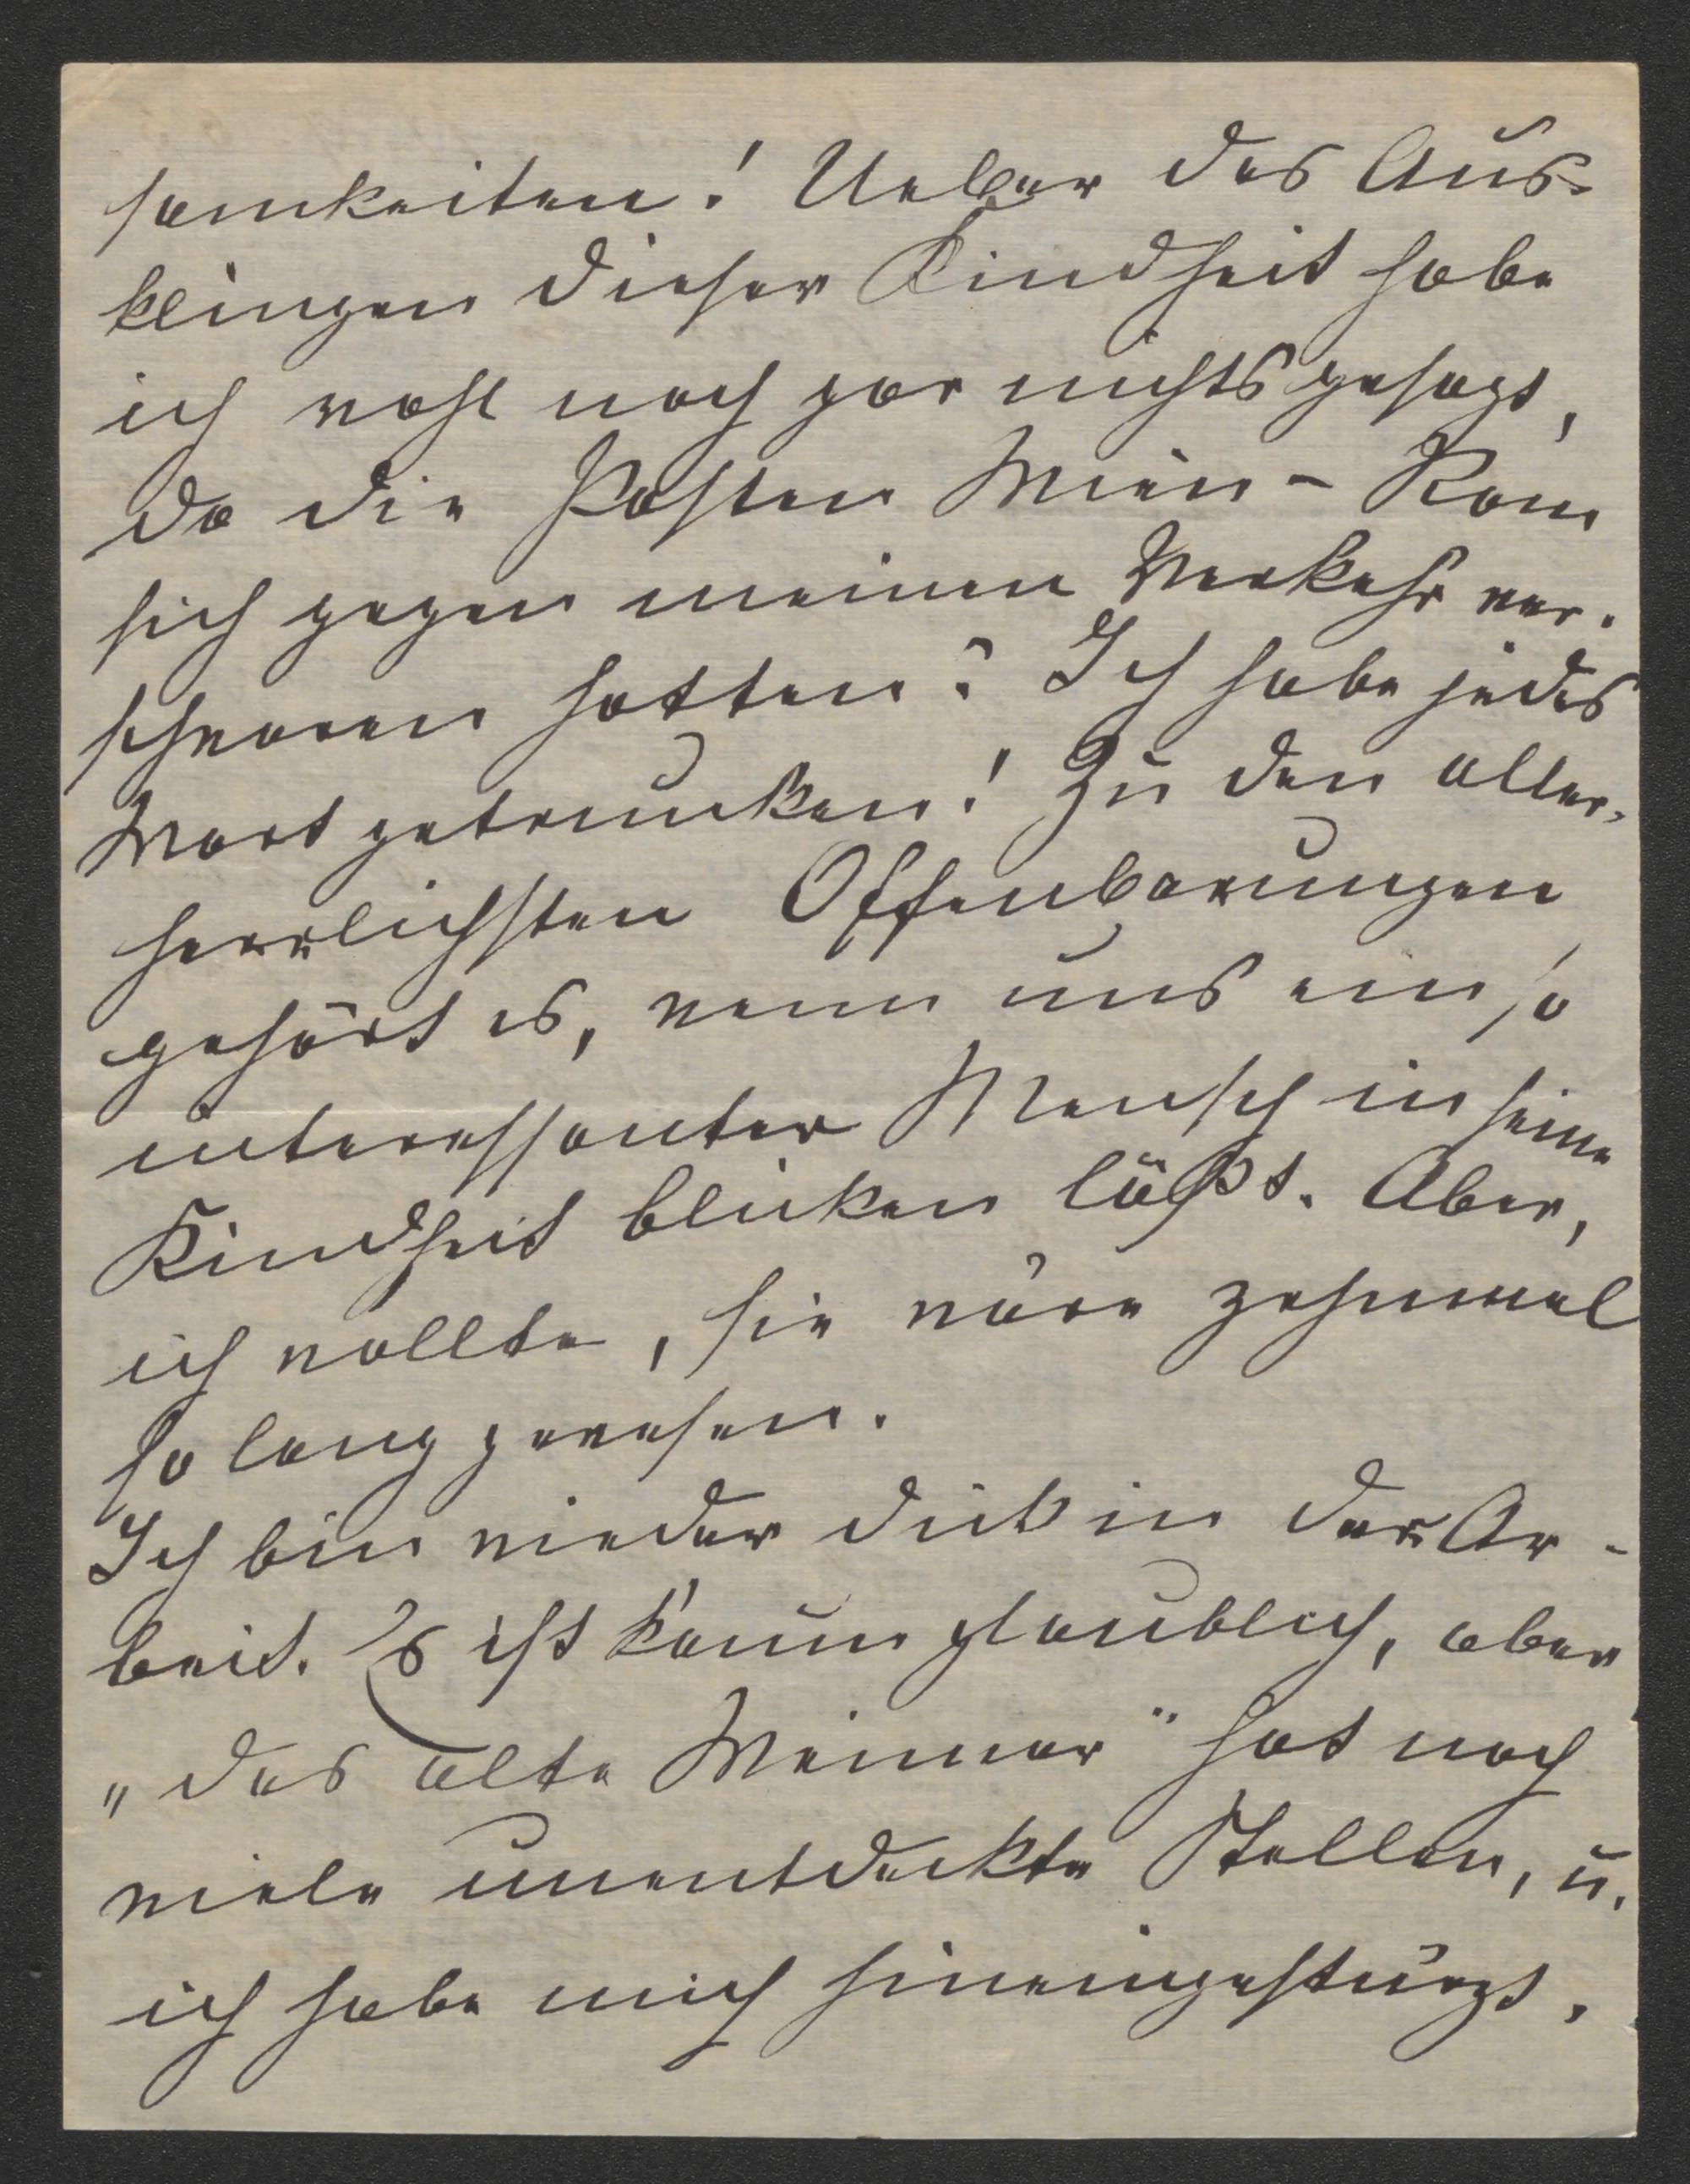 samkeiten! Ueber das Aus-
klingen dieser Kindheit habe
ich wohl noch gar nichts gesagt,
da die Posten Wien - Rom
sich gegen meinen Verkehr ver-
schworen hatten? Ich habe jedes
Wort getrunken! Zu den aller-
herrlichsten Offenbarungen
gehört es, wenn uns ein so
interessanter Mensch in seine
Kindheit blicken läßt. Aber,
ich wollte, sie wäre zehnmal
so lang gewesen.
Ich bin wieder dick in der Ar-
beit. Es ist kaum glaublich, aber
„das alte Weimar" hat noch
viele unentdeckte Stellen, u.
ich habe mich hineingestürzt,